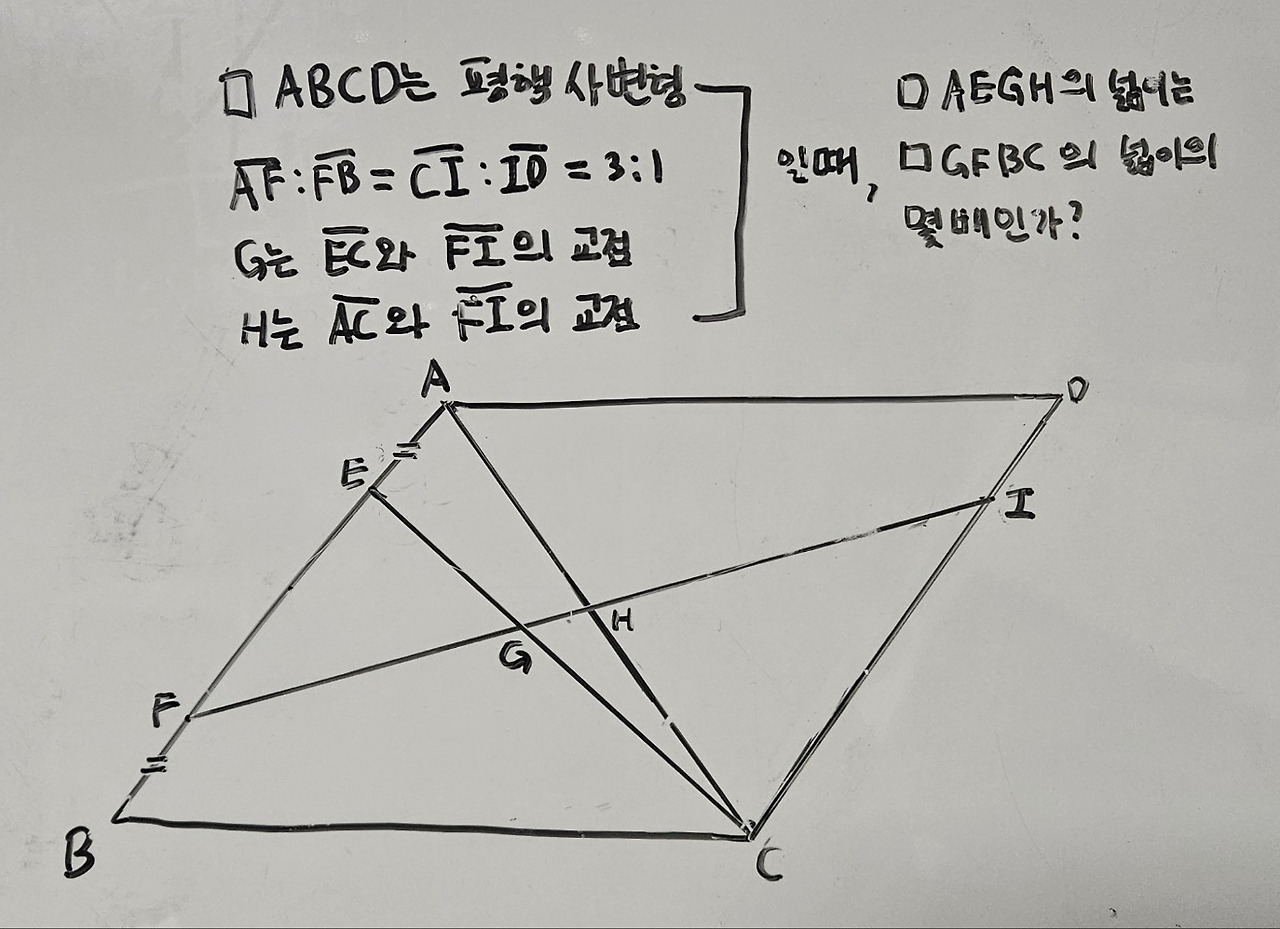 □ ABCD는 평행 사변형
AF:FB = CI:ID = 3:1
G는 EC와 FI의 교점
H는 AC와 FI의 교점
일때,
□ AEGH의 넓이는
□ GFBC의 넓이의
몇 배인가?
A
D
E
I
H
G
F
B
C